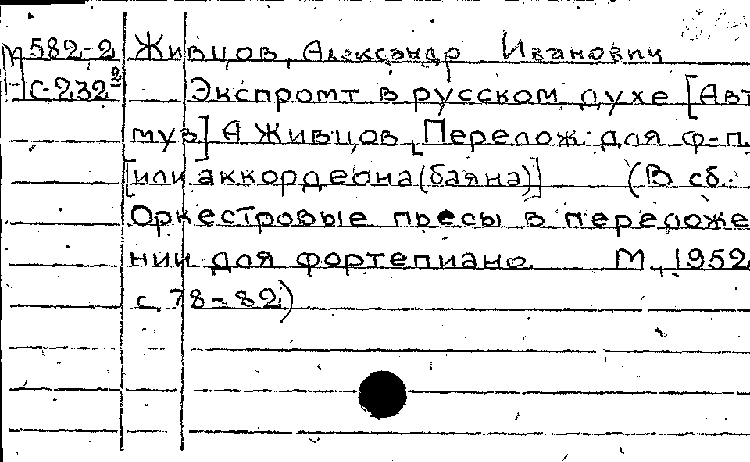 М 582-2 Живцов, Александр Иванович
С-232² Экспромт в русском духе [Авт
муз] А Живцов, [Перелож. для ф-п.
[или аккордеона (баяна)] (В сб.:
Оркестровые пьесы в переложе
нии для фортепиано. М., 1952
с. 78-82)